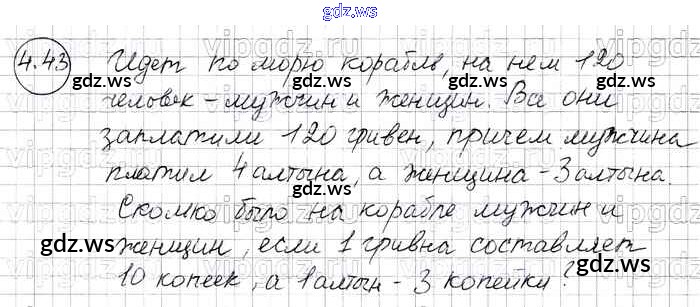 gdz.ws
4.43 Идет по морю корабль, на нем 120
gdz.ws gdz.ws gdz.ws
человек - мужчин и женщин. Все они
заплатили 120 гривен, причем мужчина
платил 4 алтына, а женщина - 3 алтына.
gdz.ws gdz.ws gdz.ws
Сколько было на корабле мужчин и
женщин, если 1 гривна составляет
gdz.ws gdz.ws gdz.ws
10 копеек, а 1 алтын - 3 копейки?